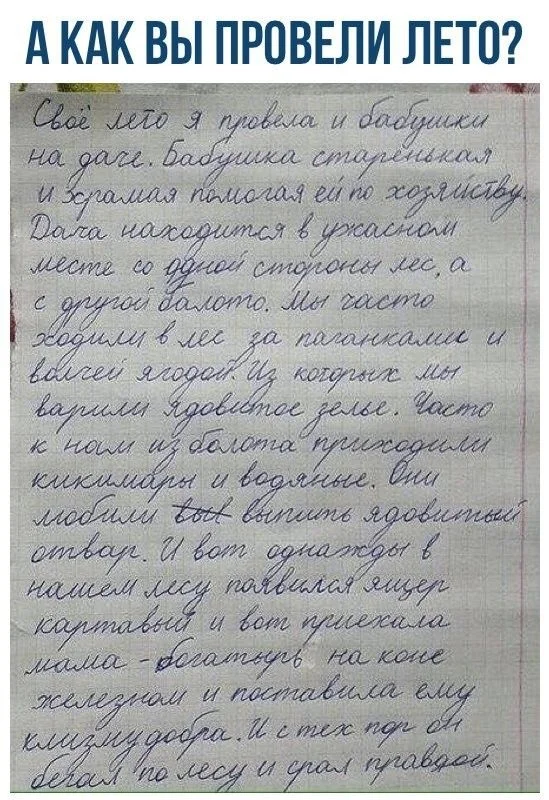 А КАК ВЫ ПРОВЕЛИ ЛЕТО?
Своё лето я провела и бабушки
на даче. Бабушка старенькая
и храмая помогая ей по хозяйству.
Дача находится в ужасном
месте со одной стороны лес, а
с другой балото. Мы часто
ходили в лес за паганками и
волчей ягодой. Из которых мы
варили ядовитое зелье. Часто
к нам из болота приходили
кикимары и водяные. Они
любили вып выпить ядовитый
отвар. И вот однажды в
нашем лесу появился ящер
картавый и вот приехала
мама - богатырь на коне
железном и поставила ему
клизму добра. И с тех пор он
бегал по лесу и срал правдой.